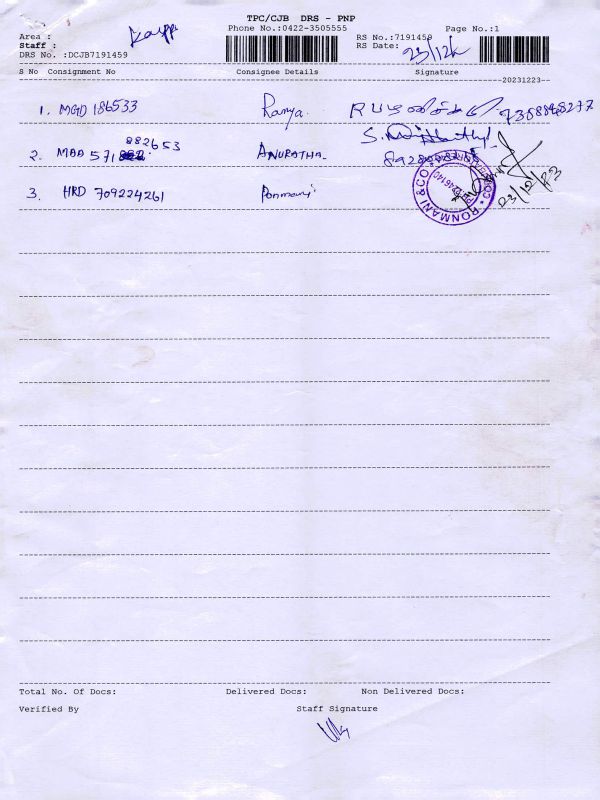 TPC/CJB DRS - PNP
Phone No.:0422-3505555
Area :
Staff :
DRS No. :DCJB7191459
RS No.:7191459
Page No.:1
RS Date: 23/12/
S No Consignment No Consignee Details Signature
20231223--
1. MGD 186533 Ranya.
2. MAD 571 882653 ANURATHA.
3. HRD 709224261 Ponmani
RONMANI & CO
23/12/23
Total No. Of Docs: Delivered Docs: Non Delivered Docs:
Verified By Staff Signature